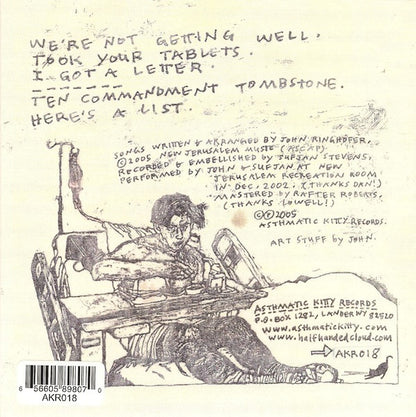 WE'RE NOT GETTING WELL.
TOOK YOUR TABLETS.
I GOT A LETTER.
TEN COMMANDMENT TOMBSTONE.
HERE'S A LIST.
SONGS WRITTEN & ARRANGED BY JOHN RINGHOFER.
©2005 NEW JERUSALEM MUSIC (ASCAP)
RECORDED & EMBELLISHED BY SUFJAN STEVENS.
PERFORMED BY JOHN & SUFJAN AT NEW
JERUSALEM RECREATION ROOM
IN DEC. 2002. (THANKS DAN!)
MASTERED BY RAFTER ROBERTS.
(THANKS LOWELL!)
©℗ 2005
ASTHMATIC KITTY RECORDS.
ART STUFF by JOHN.
ASTHMATIC KITTY RECORDS
P.O. BOX 1282, LANDER WY 82520
www.asthmatickitty.com
www.halfhandedcloud.com
AKR018
6 56605 89807 0
AKR018